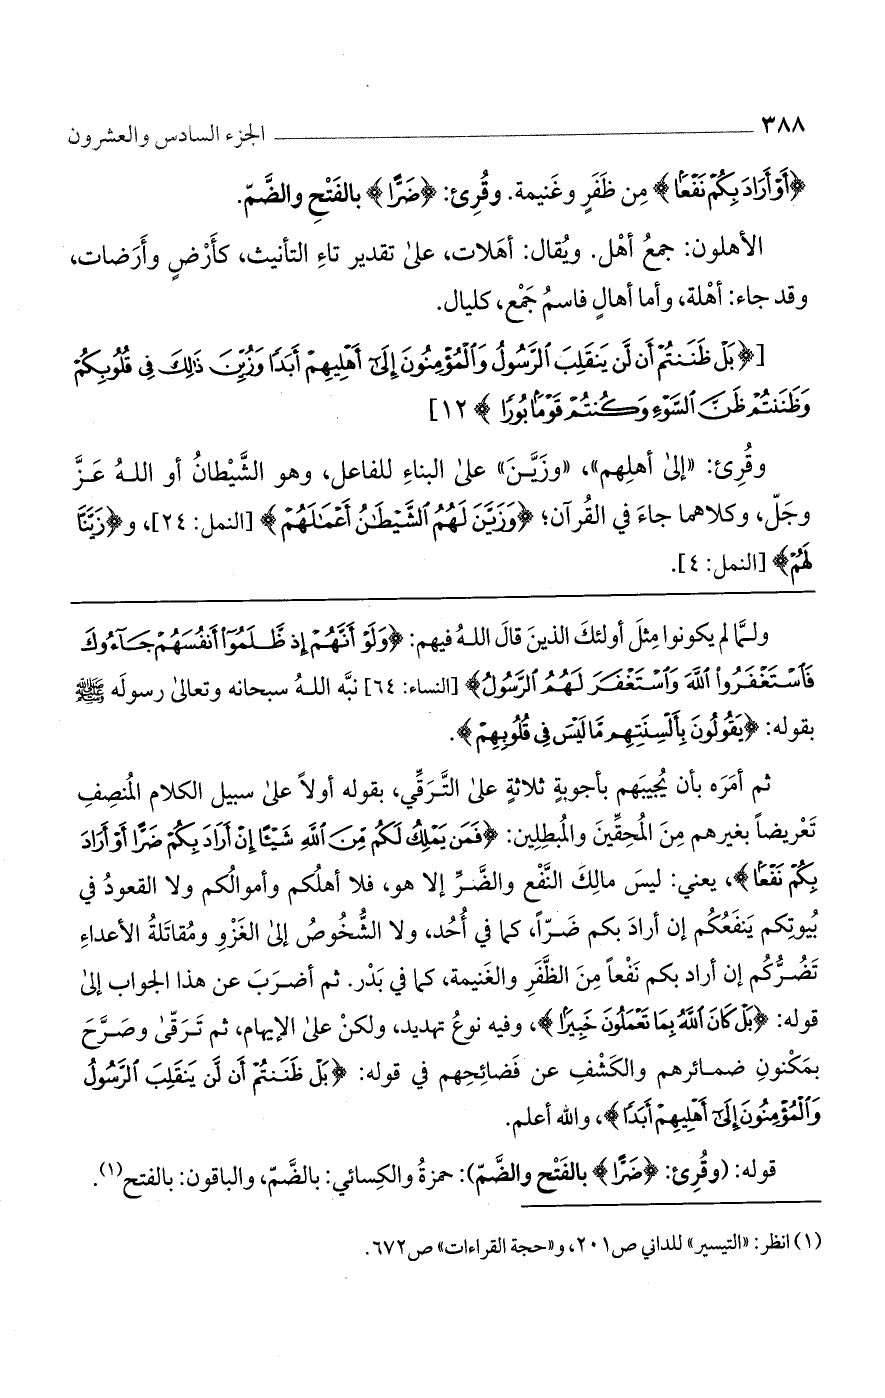 ٣٨٨ ــــــــــــــــــــــــــــــــــــــــ الجزء السادس والعشرون
﴿أَوْ أَرَادَ بِكُمْ نَفْعًا﴾ مِن ظَفَرٍ وغَنيمة. وقُرِئ: ﴿ضَرًّا﴾ بالفَتْحِ والضَّمّ.
الأهلون: جمعُ أهْل. ويُقال: أهَلات، على تقدير تاءِ التأنيث، كأَرْضٍ وأَرَضات،
وقد جاء: أهْلة، وأما أهالٍ فاسمُ جَمْع، كليال.
[﴿بَلْ ظَنَنتُمْ أَن لَّن يَنقَلِبَ ٱلرَّسُولُ وَٱلْمُؤْمِنُونَ إِلَىٰٓ أَهْلِيهِمْ أَبَدًا وَزُيِّنَ ذَٰلِكَ فِى قُلُوبِكُمْ
وَظَنَنتُمْ ظَنَّ ٱلسَّوْءِ وَكُنتُمْ قَوْمًۢا بُورًا﴾ ١٢]
وقُرِئ: «إلىٰ أهلِهم»، «وزَيَّنَ» علىٰ البناءِ للفاعل، وهو الشَّيْطانُ أو اللهُ عَزَّ
وجَلّ، وكلاهما جاءَ في القُرآن؛ ﴿وَزَيَّنَ لَهُمُ ٱلشَّيْطَٰنُ أَعْمَٰلَهُمْ﴾ [النمل: ٢٤]، و﴿زَيَّنَّا
لَهُمْ﴾ [النمل: ٤].
ولمَّا لم يكونوا مِثلَ أولئكَ الذينَ قالَ اللهُ فيهم: ﴿وَلَوْ أَنَّهُمْ إِذ ظَّلَمُوٓا۟ أَنفُسَهُمْ جَآءُوكَ
فَٱسْتَغْفَرُوا۟ ٱللَّهَ وَٱسْتَغْفَرَ لَهُمُ ٱلرَّسُولُ﴾ [النساء: ٦٤] نبَّه اللهُ سبحانه وتعالىٰ رسولَه ﷺ
بقوله: ﴿يَقُولُونَ بِأَلْسِنَتِهِم مَّا لَيْسَ فِى قُلُوبِهِمْ﴾.
ثم أمَرَه بأن يُجيبَهم بأجوبةٍ ثلاثةٍ علىٰ التَّرَقِّي، بقوله أولاً علىٰ سبيل الكلام المُنصِفِ
تَعْريضاً بغيرهم مِنَ المُحقِّينَ والمُبطِلين: ﴿فَمَن يَمْلِكُ لَكُم مِّنَ ٱللَّهِ شَيْـًٔا إِنْ أَرَادَ بِكُمْ ضَرًّا أَوْ أَرَادَ
بِكُمْ نَفْعًۢا﴾، يعني: ليسَ مالِكَ النَّفْع والضَّرِّ إلا هو، فلا أهلُكم وأموالُكم ولا القعودُ في
بُيوتِكم يَنفَعُكُم إن أرادَ بكم ضَرّاً، كما في أُحُد، ولا الشُّخُوصُ إلىٰ الغَزْوِ ومُقاتَلةُ الأعداءِ
تَضُرُّكُم إن أراد بكم نَفْعاً مِنَ الظَّفَرِ والغَنيمة، كما في بَدْر. ثم أضرَبَ عن هذا الجواب إلىٰ
قوله: ﴿بَلْ كَانَ ٱللَّهُ بِمَا تَعْمَلُونَ خَبِيرًۢا﴾، وفيه نوعُ تهديد، ولكنْ علىٰ الإيهام، ثم تَرَقّىٰ وصَرَّحَ
بمَكْنونِ ضمائرهم والكَشْفِ عن فَضائحِهم في قوله: ﴿بَلْ ظَنَنتُمْ أَن لَّن يَنقَلِبَ ٱلرَّسُولُ
وَٱلْمُؤْمِنُونَ إِلَىٰٓ أَهْلِيهِمْ أَبَدًا﴾، والله أعلم.
قوله: (وقُرِئ: ﴿ضَرًّا﴾ بالفَتْح والضَّمّ): حمزةُ والكِسائي: بالضَّمّ، والباقون: بالفتح(١).
(١) انظر: «التيسير» للداني ص٢٠١، و«حجة القراءات» ص٦٧٢.